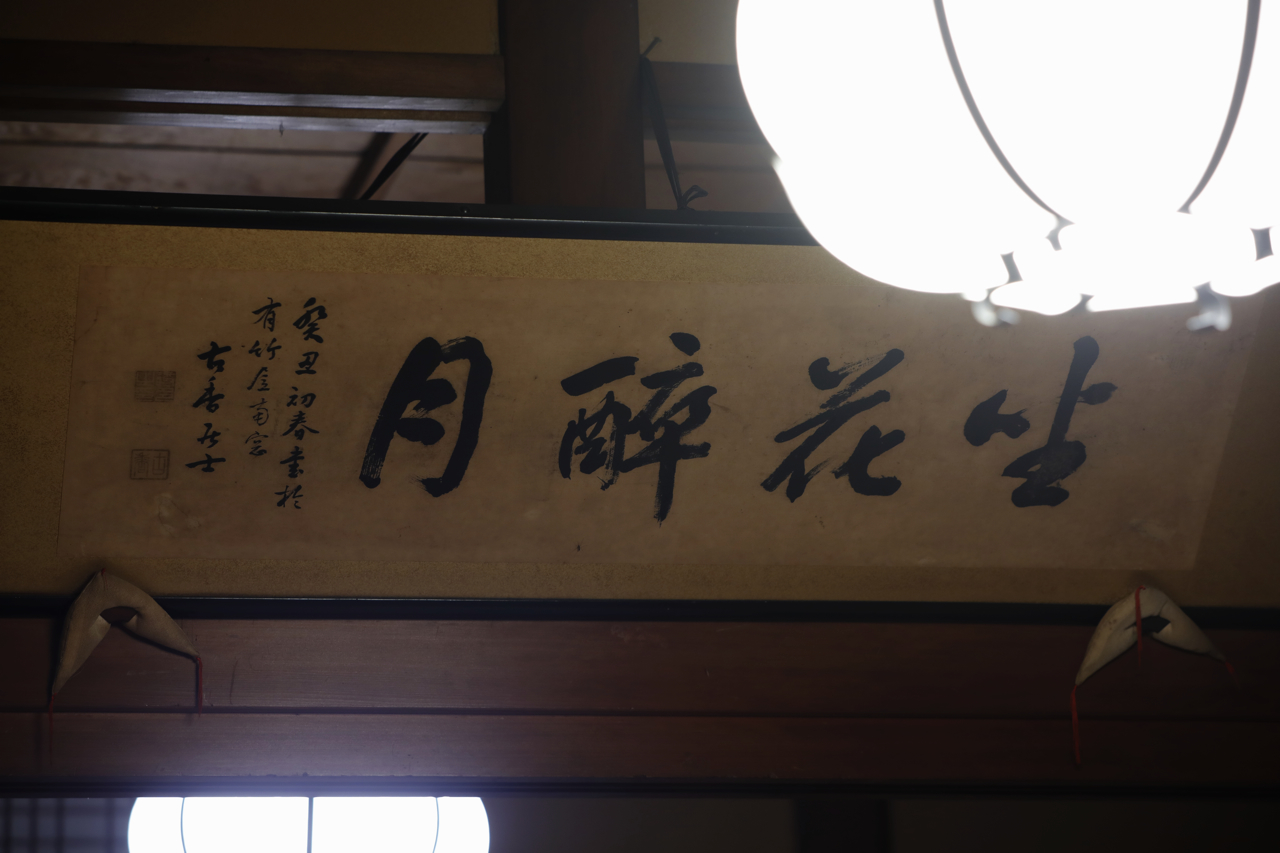 坐花醉月
癸丑初春書於
有竹居南窓
古香居士